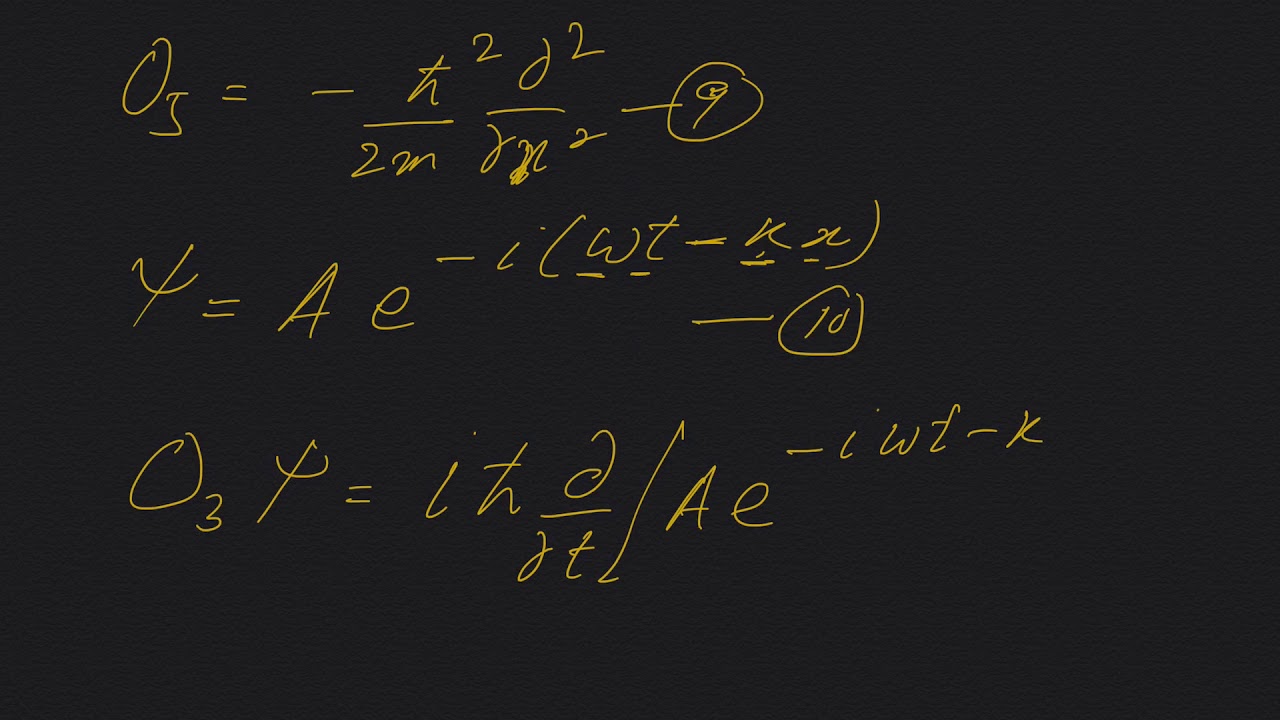 O₅ = - ħ²/2m ∂²/∂x² — ⑨
Ψ = A e^{-i(ωt - kx)} — ⑩
O₃ Ψ = iħ ∂/∂t [A e^{-iωt-k}